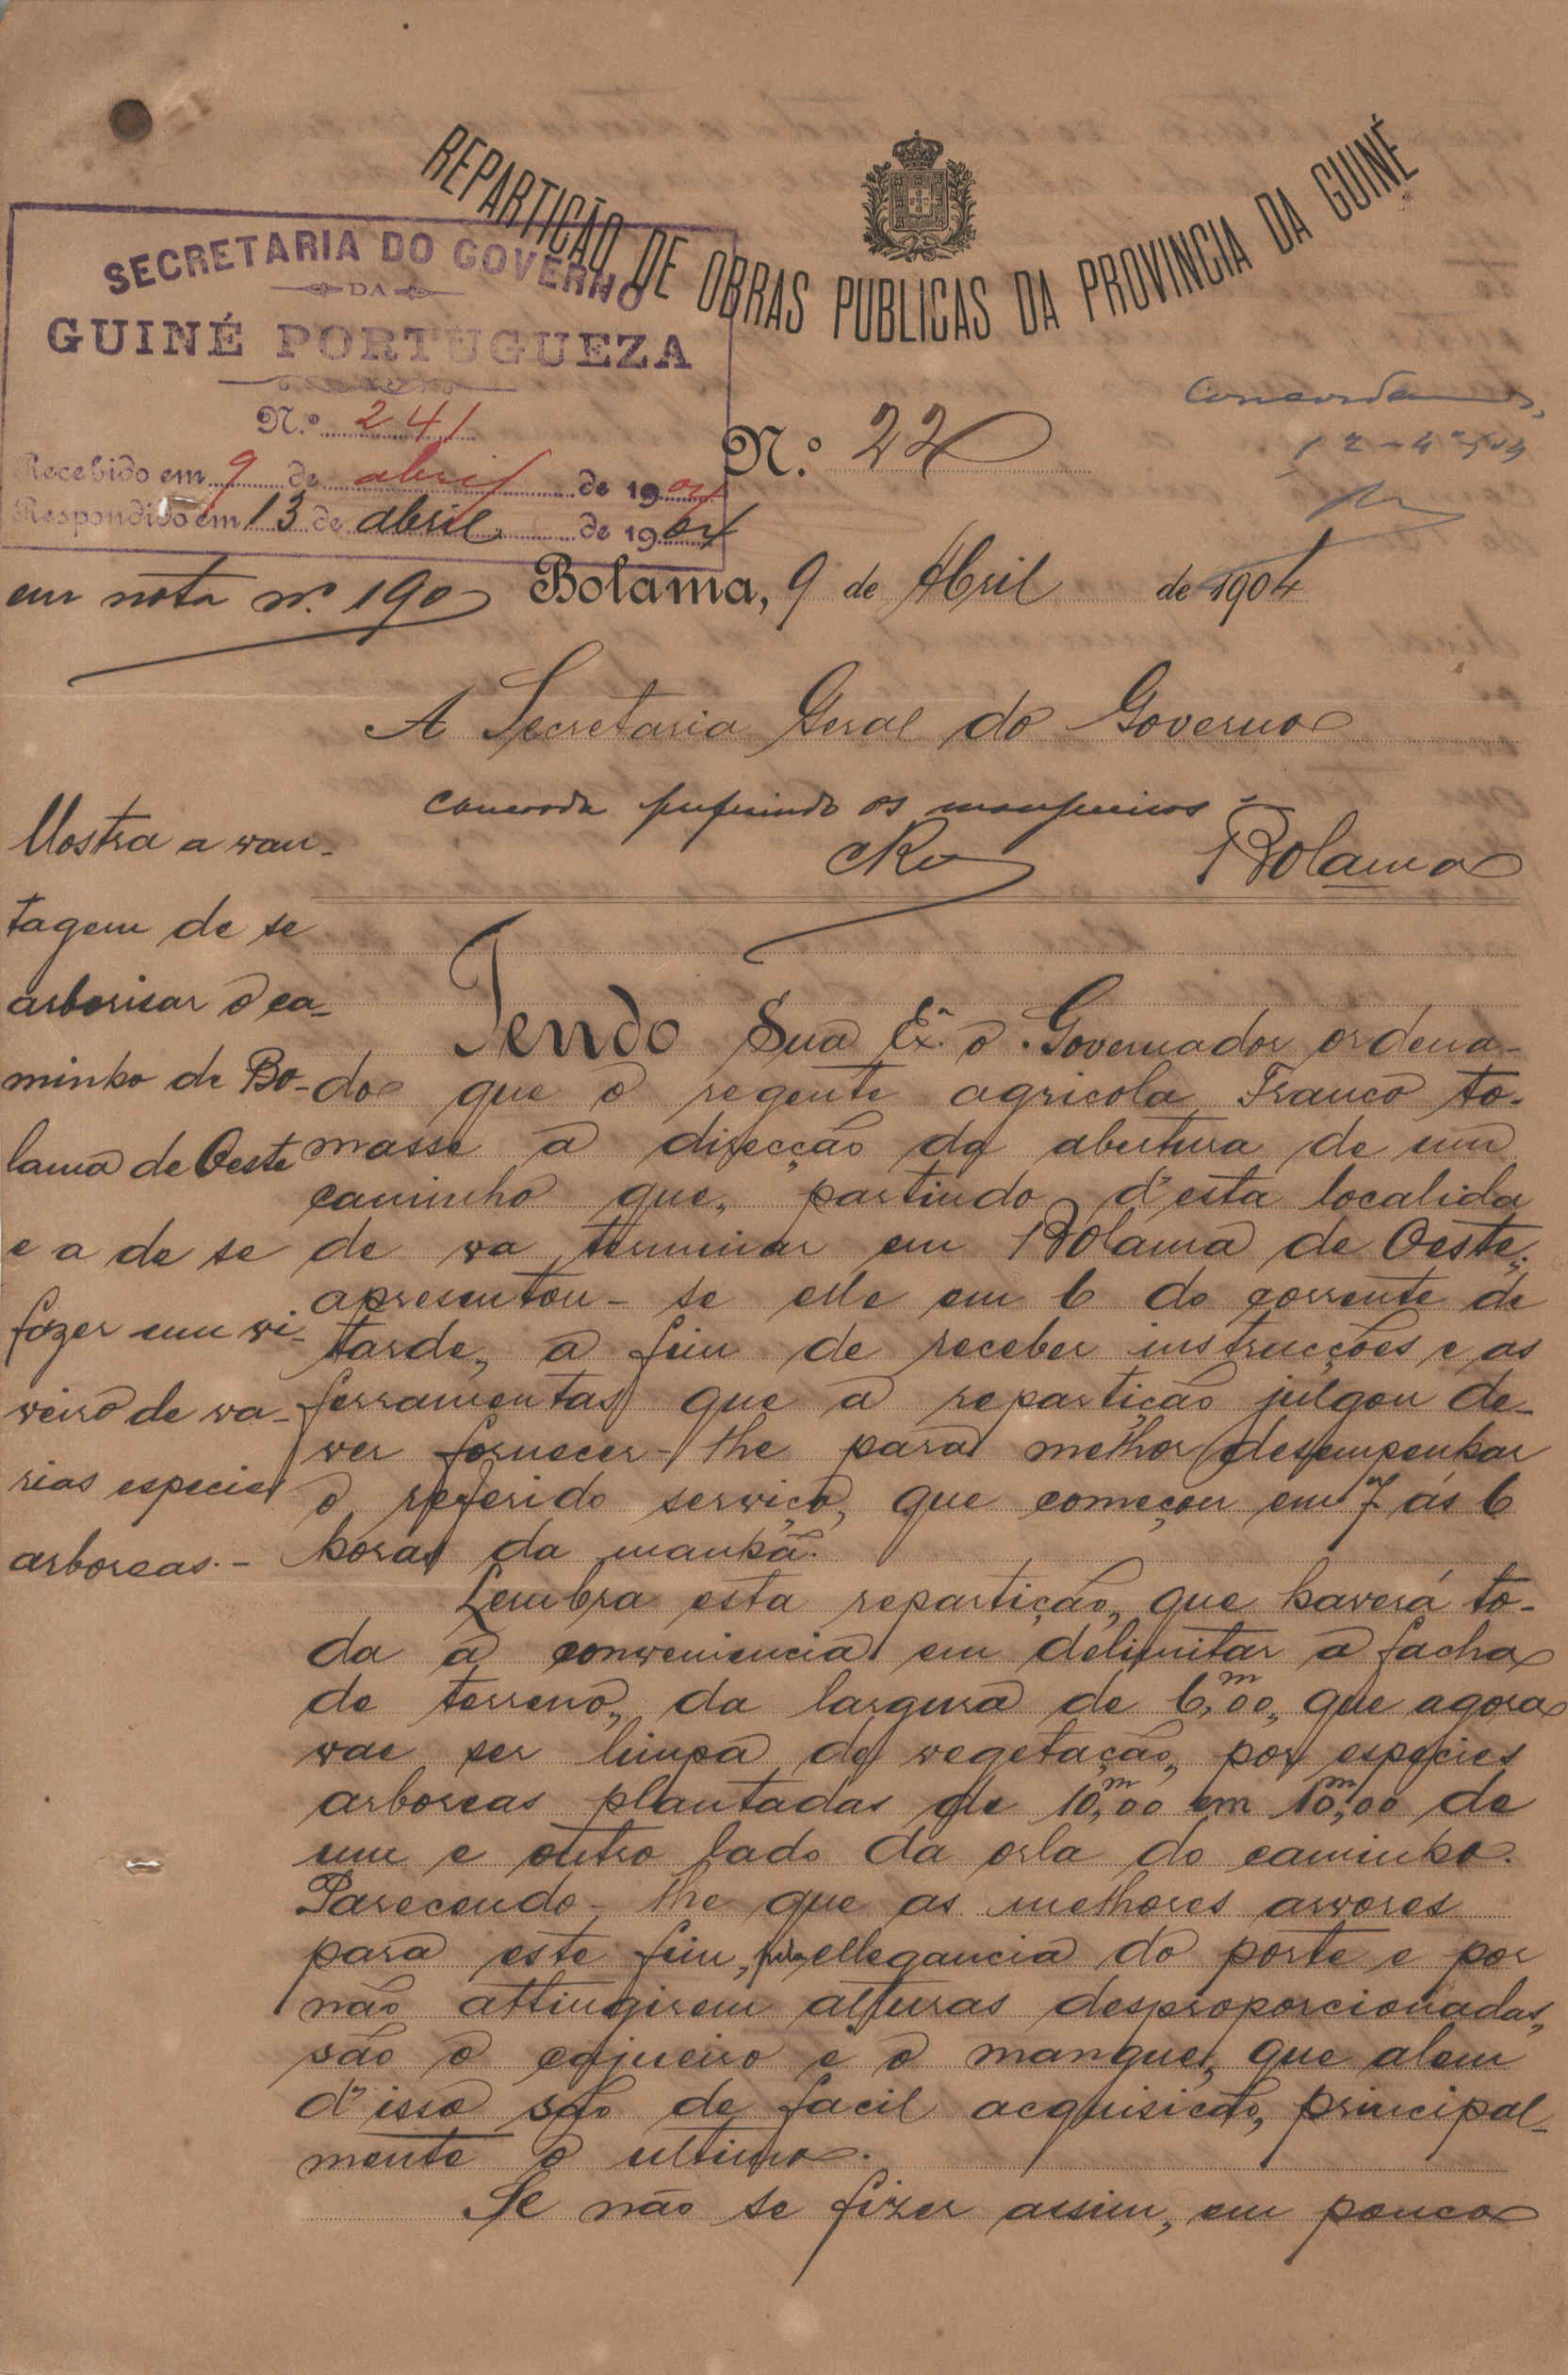 REPARTIÇÃO DE OBRAS PUBLICAS DA PROVINCIA DA GUINÉ
SECRETARIA DO GOVERNO
DA
GUINÉ PORTUGUEZA
N.º 241
Recebido em 9 de abril de 1904
Respondido em 13 de abril de 1904
em nota nº 190
N.º 22
Concordamos,
12-4-904
Bolama, 9 de Abril de 1904
A Secretaria Geral do Governo
concorda preferindo os mangueiros
Bolama
Mostra a van-
tagem de se
arborisar o ca-
minho de Bo-
lama de Oeste
e a de se
fazer um vi-
veiro de va-
rias especies
arboreas.-
Tendo Sua Exª o Governador ordena-
do que o regente agricola Franco to-
masse a direcção da abertura de um
caminho que, partindo d'esta localida
de va terminar em Bolama de Oeste,
apresentou-se elle em 6 do corrente de
tarde, a fim de receber instrucções e as
ferramentas que a repartição julgou de-
ver fornecer-lhe para melhor desempenhar
o referido serviço, que começou em 7 ás 6
horas da manhã.
Lembra esta repartição, que haverá to-
da a conveniencia em delimitar a facha
de terreno, da largura de 6,ᵐ00, que agora
vae ser limpa de vegetação, por especies
arboreas plantadas de 10,ᵐ00 em 10,ᵐ00 de
um e outro lado da orla do caminho.
Parecendo-lhe que as melhores arvores
para este fim, pela ellegancia do porte e por
não attingirem alturas desproporcionadas,
são o cajueiro e o mangue, que alem
d'isso são de facil acquisição, principal-
mente o ultimo.
Se não se fizer assim, em pouco